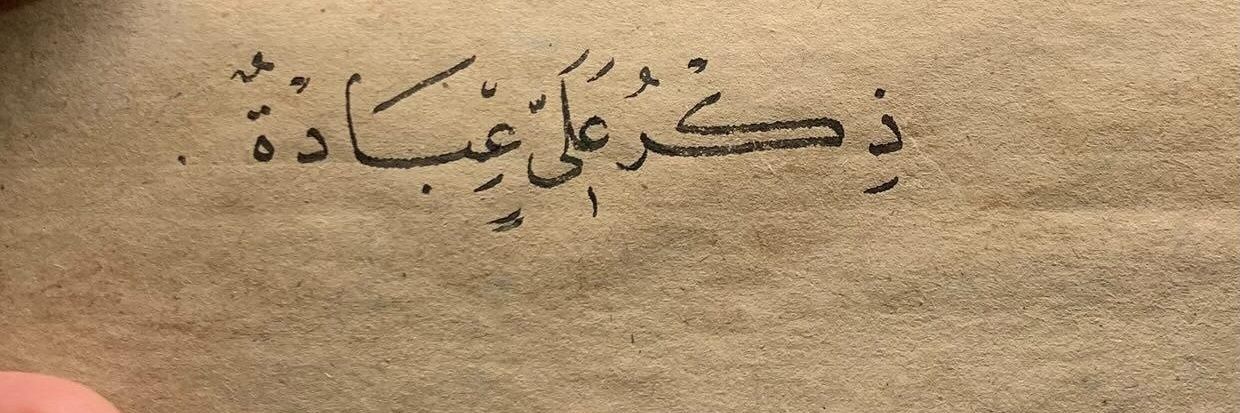 ذِكْرُ عَلِىٍّ عِبَادَةٌ .